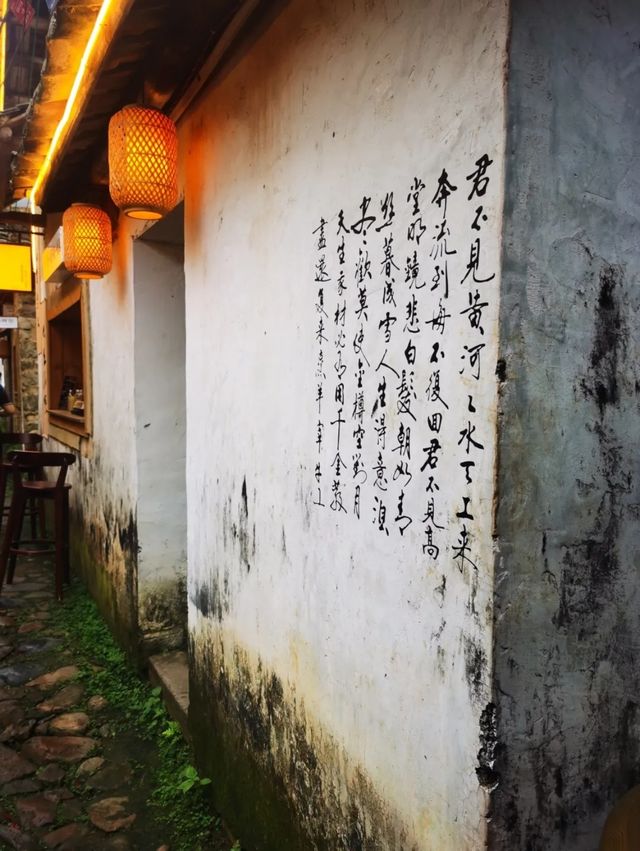 君不見黄河之水天上来
奔流到海不復回君不見高
堂明鏡悲白髮朝如青
丝暮成雪人生得意須
尽歡莫使金樽空對月
天生我材必有用千金散
盡還復来烹羊宰牛且